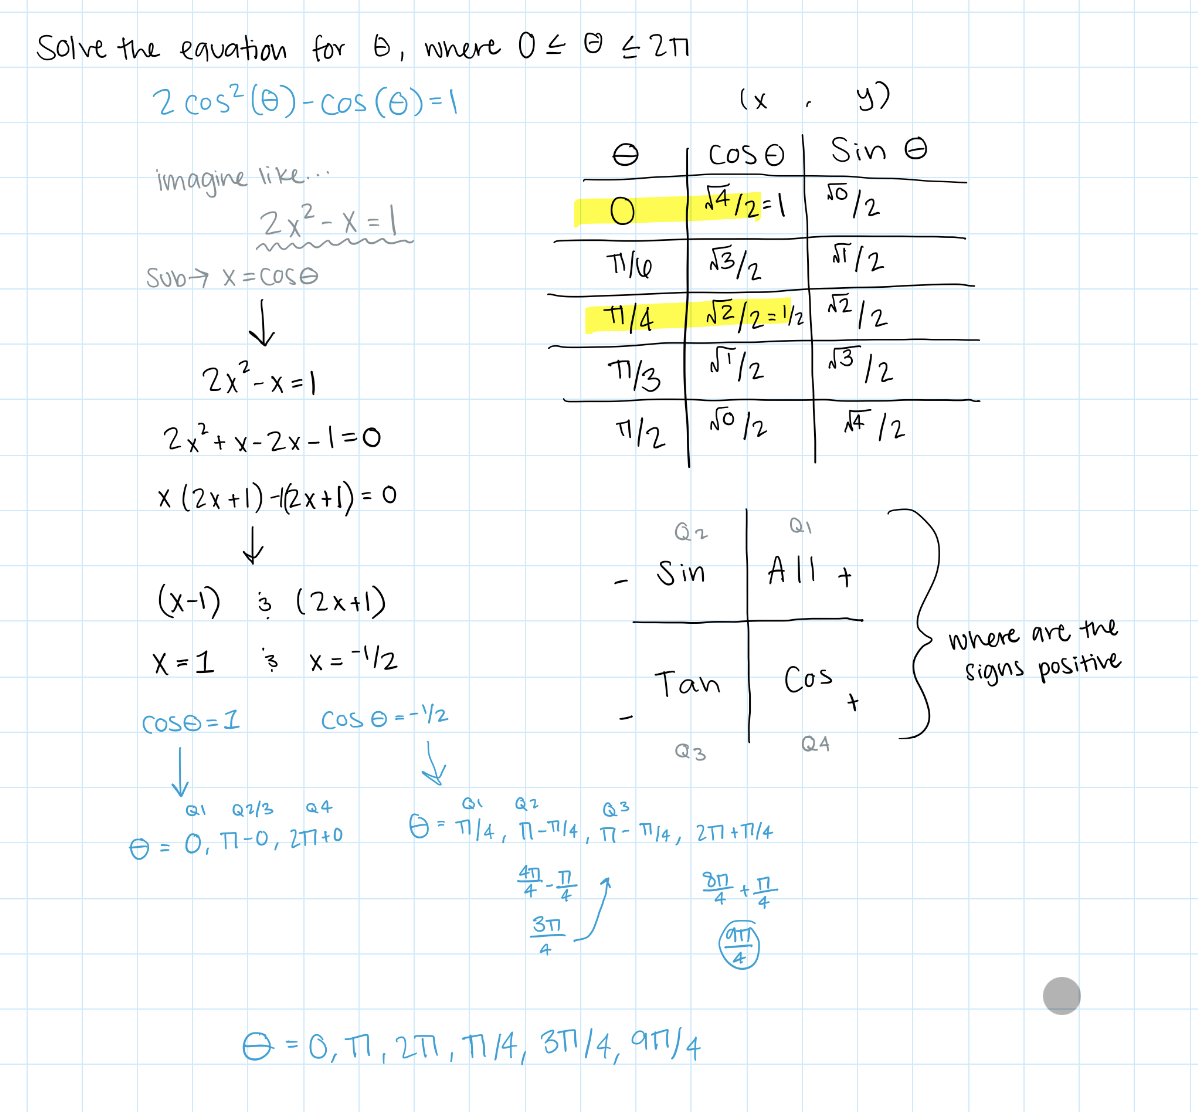 Solve the equation for θ, where 0 ≤ θ ≤ 2π
2 cos²(θ) - cos(θ) = 1
imagine like...
2x² - x = 1
Sub → x = cosθ
↓
2x² - x = 1
2x² + x - 2x - 1 = 0
x (2x+1) -1(2x+1) = 0
↓
(x-1) & (2x+1)
x = 1 & x = -1/2
cosθ = 1 cos θ = -1/2
Q1 Q2/3 Q4
θ = 0, π-0, 2π+0
Q1 Q2 Q3
θ = π/4, π-π/4, π-π/4, 2π+π/4
4π/4 - π/4
3π/4
8π/4 + π/4
9π/4
θ = 0, π, 2π, π/4, 3π/4, 9π/4
(x , y)
θ cosθ Sin θ
0 √4/2=1 √0/2
π/6 √3/2 √1/2
π/4 √2/2=1/2 √2/2
π/3 √1/2 √3/2
π/2 √0/2 √4/2
Q2 Q1
- Sin All +
Tan Cos
- +
Q3 Q4
where are the
signs positive